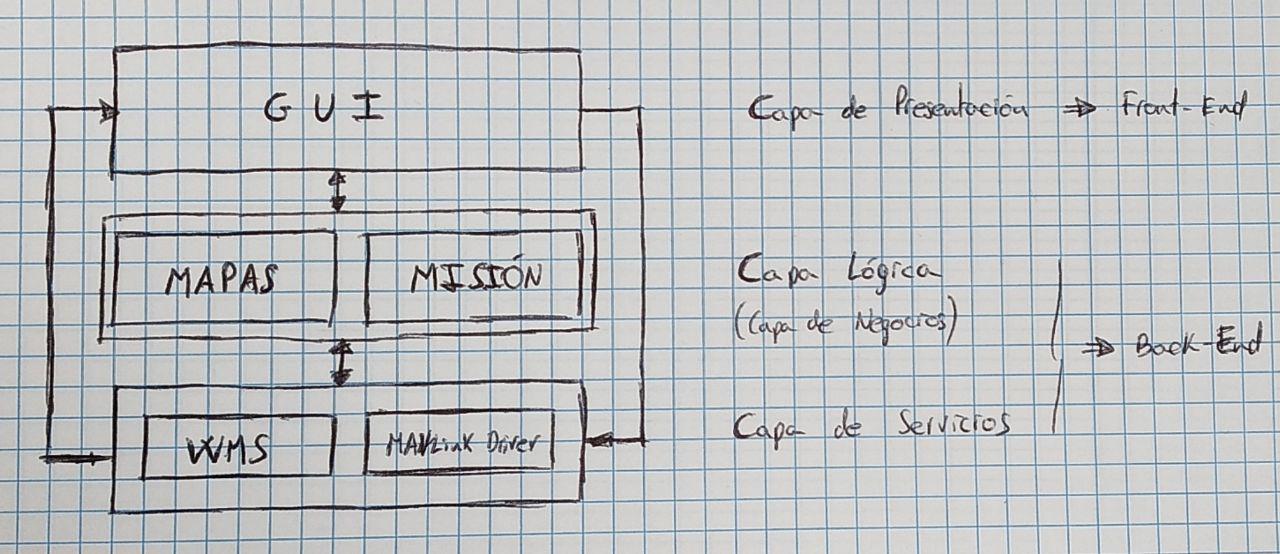 GUI
Capa de Presentación ⇒ Front-End
MAPAS
MISIÓN
Capa Lógica
(Capa de Negocios)
⇒ Back-End
WMS
MAVLink Driver
Capa de Servicios